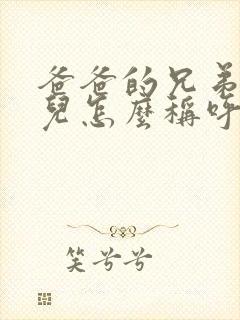 爸爸的兄弟
兒怎麼稱呼
笑兮兮